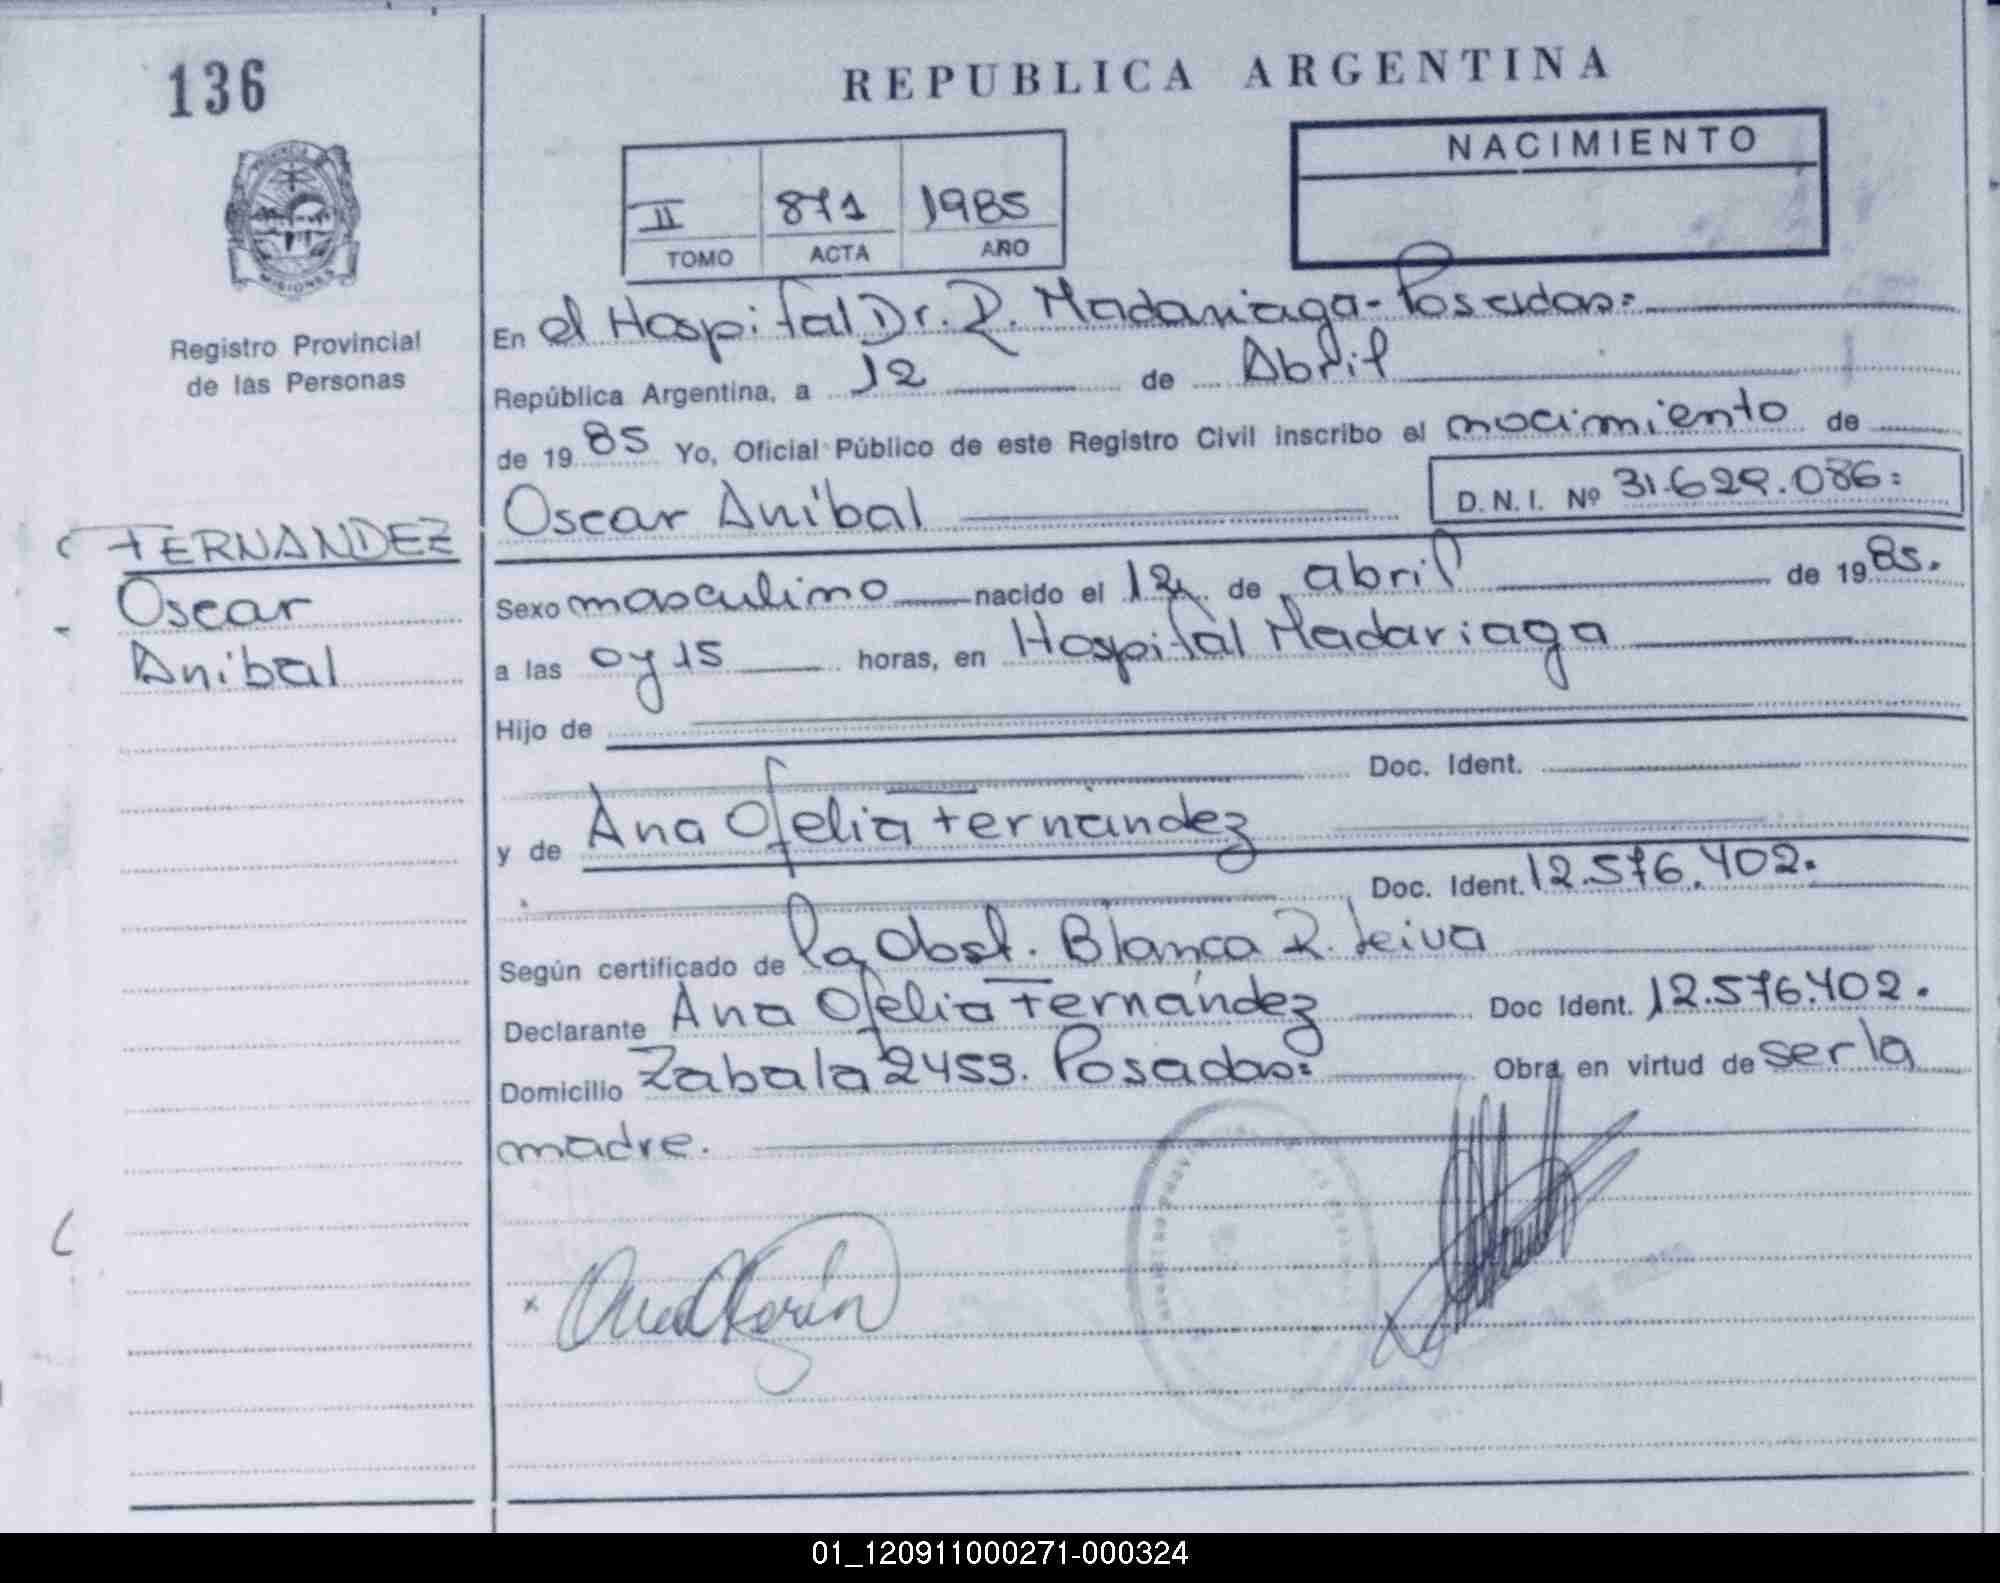 136
REPUBLICA ARGENTINA
NACIMIENTO
II 871 1985
TOMO ACTA AÑO
PROVINCIA DE MISIONES
Registro Provincial
de las Personas
En el Hospital Dr. R. Madariaga - Posadas=
República Argentina, a 12 de Abril
de 1985 Yo, Oficial Público de este Registro Civil inscribo el nacimiento de
Oscar Anibal D.N.I. Nº 31.629.086=
FERNANDEZ
Oscar
Anibal
Sexo masculino nacido el 12 de abril de 1985.
a las 0 y 15 horas, en Hospital Madariaga
Hijo de
Doc. Ident.
y de Ana Ofelia Fernández
Doc. Ident. 12.576.402.
Según certificado de la Obst. Blanca R. Leiva
Declarante Ana Ofelia Fernández Doc Ident. 12.576.402.
Domicilio Zabala 2453. Posadas= Obra en virtud de ser la
madre.
01_120911000271-000324